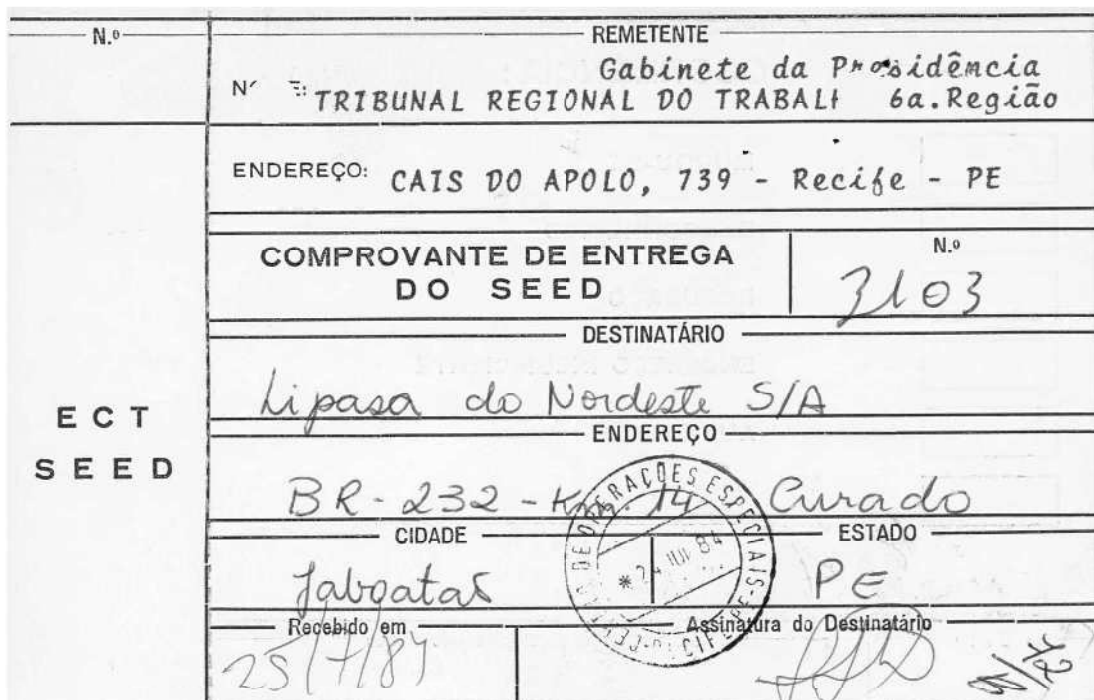 N.º
REMETENTE
Gabinete da Presidência
TRIBUNAL REGIONAL DO TRABALH 6a.Região
ENDEREÇO: CAIS DO APOLO, 739 - Recife - PE
COMPROVANTE DE ENTREGA
DO SEED
N.º
3103
DESTINATÁRIO
Lipasa do Nordeste S/A
ECT
SEED
ENDEREÇO
BR-232-Km 14 Curado
CIDADE
ESTADO
Jaboatão
PE
OPERAÇÕES ESPECIAIS
* 24 JUL 84
Recebido em
Assinatura do Destinatário
25/7/84